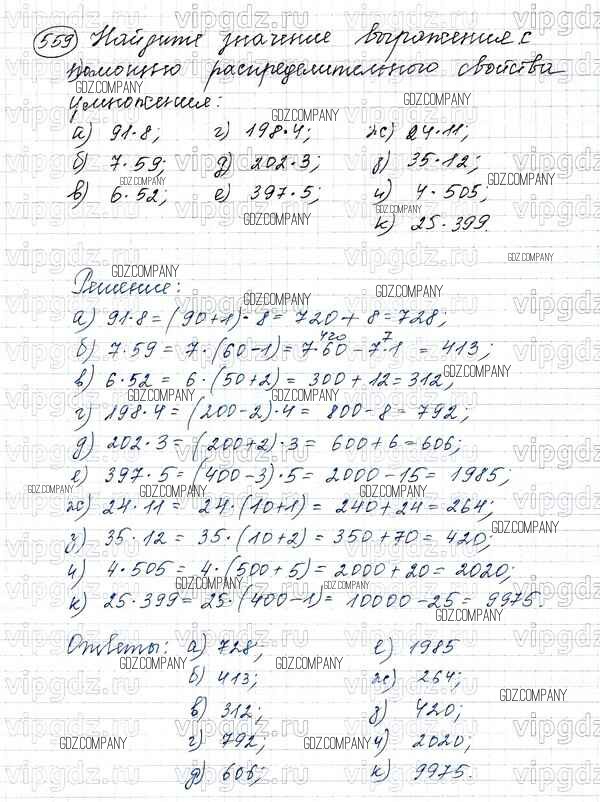 559 Найдите значение выражения с
помощью распределительного свойства
умножения:
а) 91·8; г) 198·4; ж) 24·11;
б) 7·59; д) 202·3; з) 35·12;
в) 6·52; е) 397·5; и) 4·505;
к) 25·399.
Решение:
а) 91·8=(90+1)·8=720+8=728;
б) 7·59=7·(60-1)=7·60-7·1=413;
420 7
в) 6·52=6·(50+2)=300+12=312;
г) 198·4=(200-2)·4=800-8=792;
д) 202·3=(200+2)·3=600+6=606;
е) 397·5=(400-3)·5=2000-15=1985;
ж) 24·11=24·(10+1)=240+24=264;
з) 35·12=35·(10+2)=350+70=420;
и) 4·505=4·(500+5)=2000+20=2020;
к) 25·399=25·(400-1)=10000-25=9975.
Ответы: а) 728; е) 1985
б) 413; ж) 264;
в) 312; з) 420;
г) 792; и) 2020;
д) 606; к) 9975.
vipgdz.ru
GDZ.COMPANY